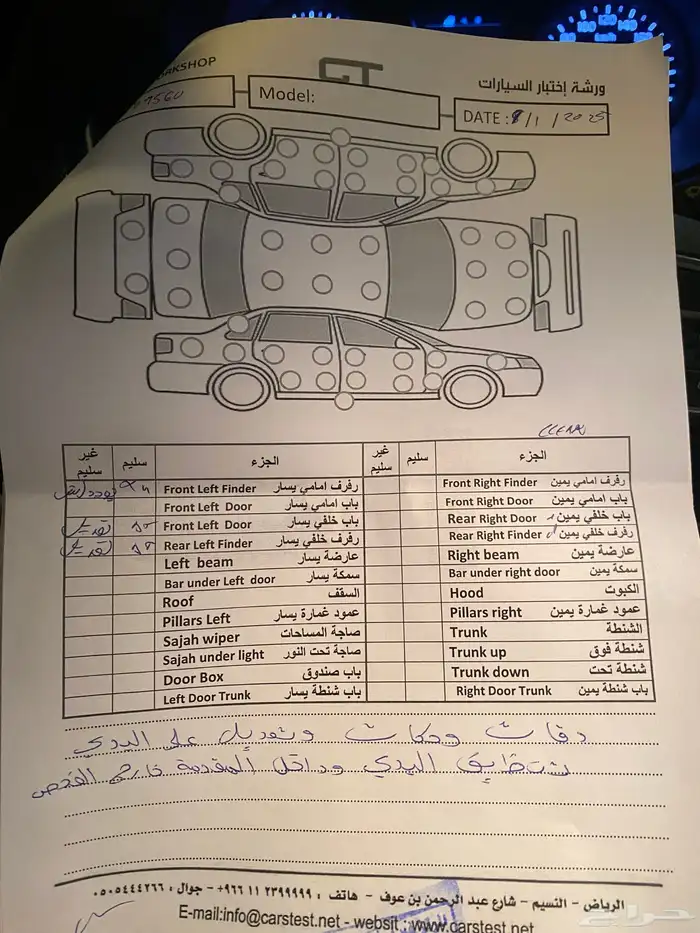 WORKSHOP
CT
ورشة إختبار السيارات
Model:
DATE : 8/1/2025
غير سليم
سليم
الجزء
غير سليم
سليم
الجزء
Front Left Finder رفرف امامي يسار
Front Right Finder رفرف امامي يمين
Front Left Door باب امامي يسار
Front Right Door باب امامي يمين
Front Left Door باب خلفي يسار
Rear Right Door باب خلفي يمين
Rear Left Finder رفرف خلفي يسار
Rear Right Finder رفرف خلفي يمين
Left beam عارضة يسار
Right beam عارضة يمين
Bar under Left door سمكة يسار
Bar under right door سمكة يمين
Roof السقف
Hood الكبوت
Pillars Left عمود غمارة يسار
Pillars right عمود غمارة يمين
Sajah wiper صاجة المساحات
Trunk الشنطة
Sajah under light صاجة تحت النور
Trunk up شنطة فوق
Door Box باب صندوق
Trunk down شنطة تحت
Left Door Trunk باب شنطة يسار
Right Door Trunk باب شنطة يمين
دقات وحكات وتعديل على البدي
البدي وداخل المقدمة خارج الفحص
الرياض - النسيم - شارع عبد الرحمن بن عوف - هاتف : ٢٣٩٩٩٩٩ ١١ ٩٦٦+ - جوال : ٠٥٠٥٤٤٤٢٦٦
E-mail:info@carstest.net - websit : www.carstest.net
حراج